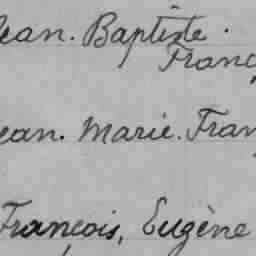 Jean. Baptiste.
Franç
Jean. Marie. Fran
François, Eugène